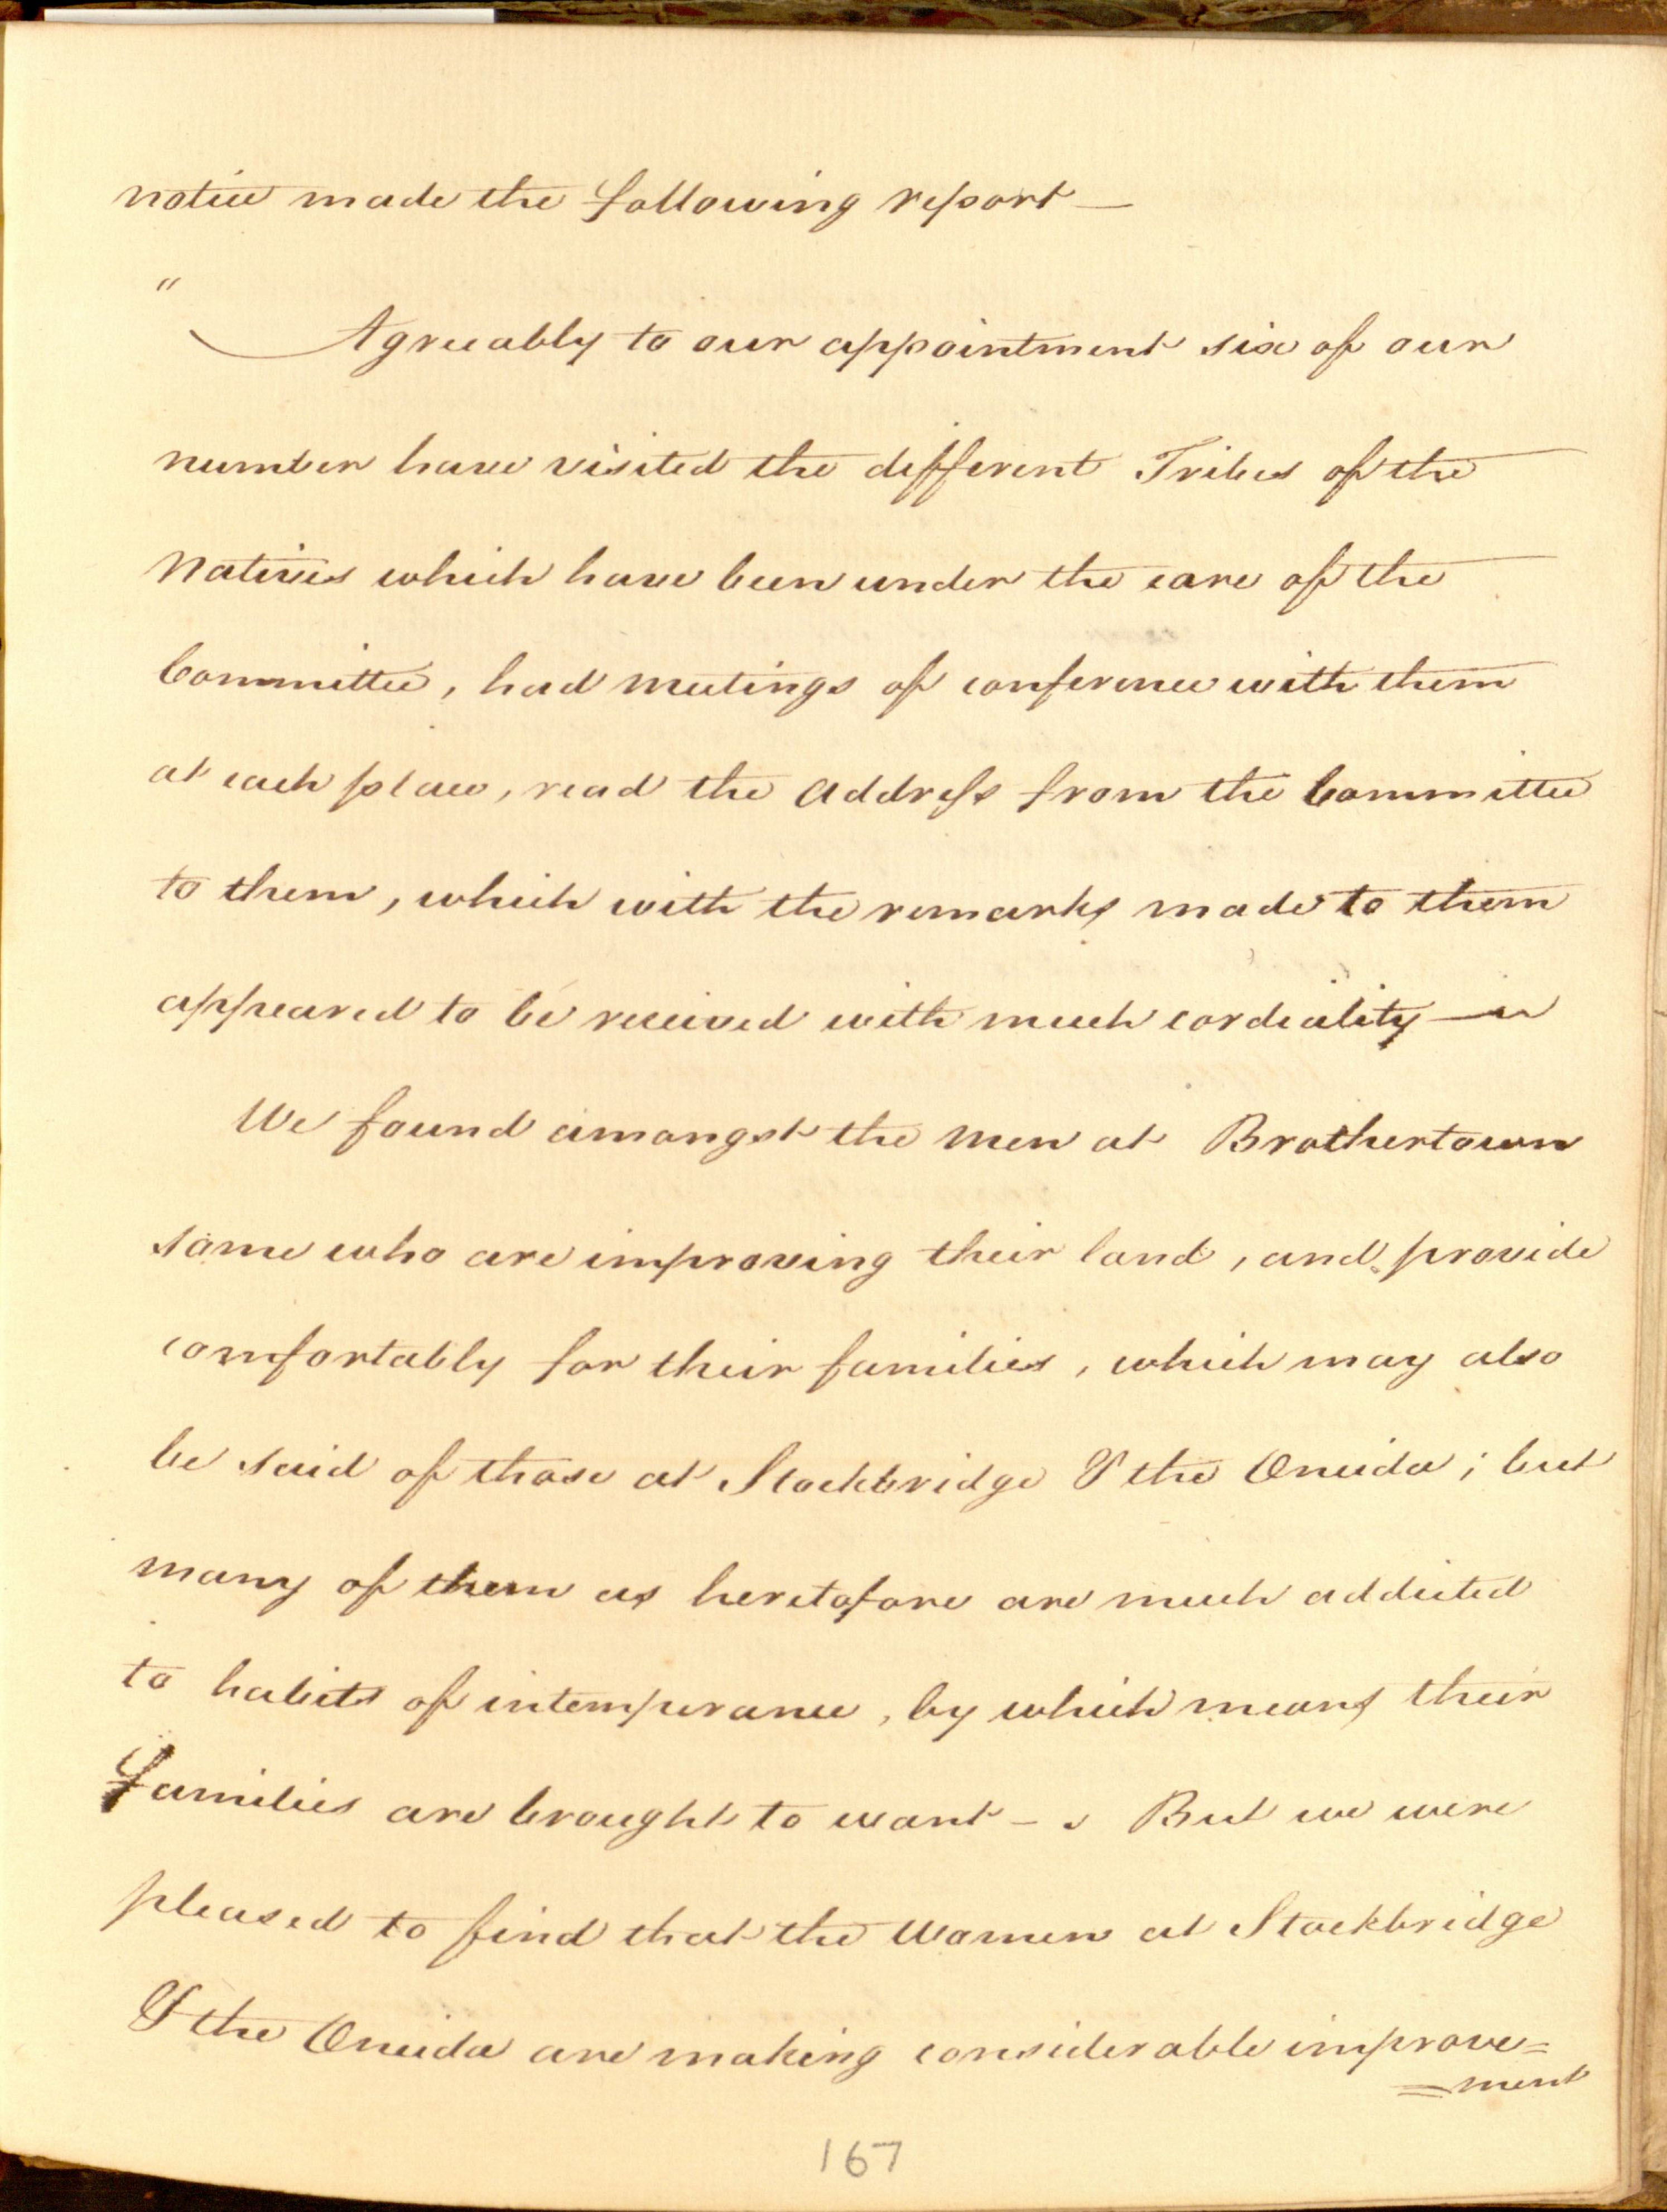 notice made the following report —
"
Agreeably to our appointment six of our
number have visited the different Tribes of the
Natives which have been under the care of the
Committee, had meetings of conference with them
at each place, read the Address from the Committee
to them, which with the remarks made to them
appeared to be received with much cordiality —
We found amongst the Men at Brothertown
some who are improving their land, and provide
comfortably for their families, which may also
be said of those at Stockbridge & the Oneida; but
many of them as heretofore are much addicted
to habits of intemperance, by which means their
families are brought to want — . But we were
pleased to find that the Women at Stockbridge
& the Oneida are making considerable improve=
=ment
167